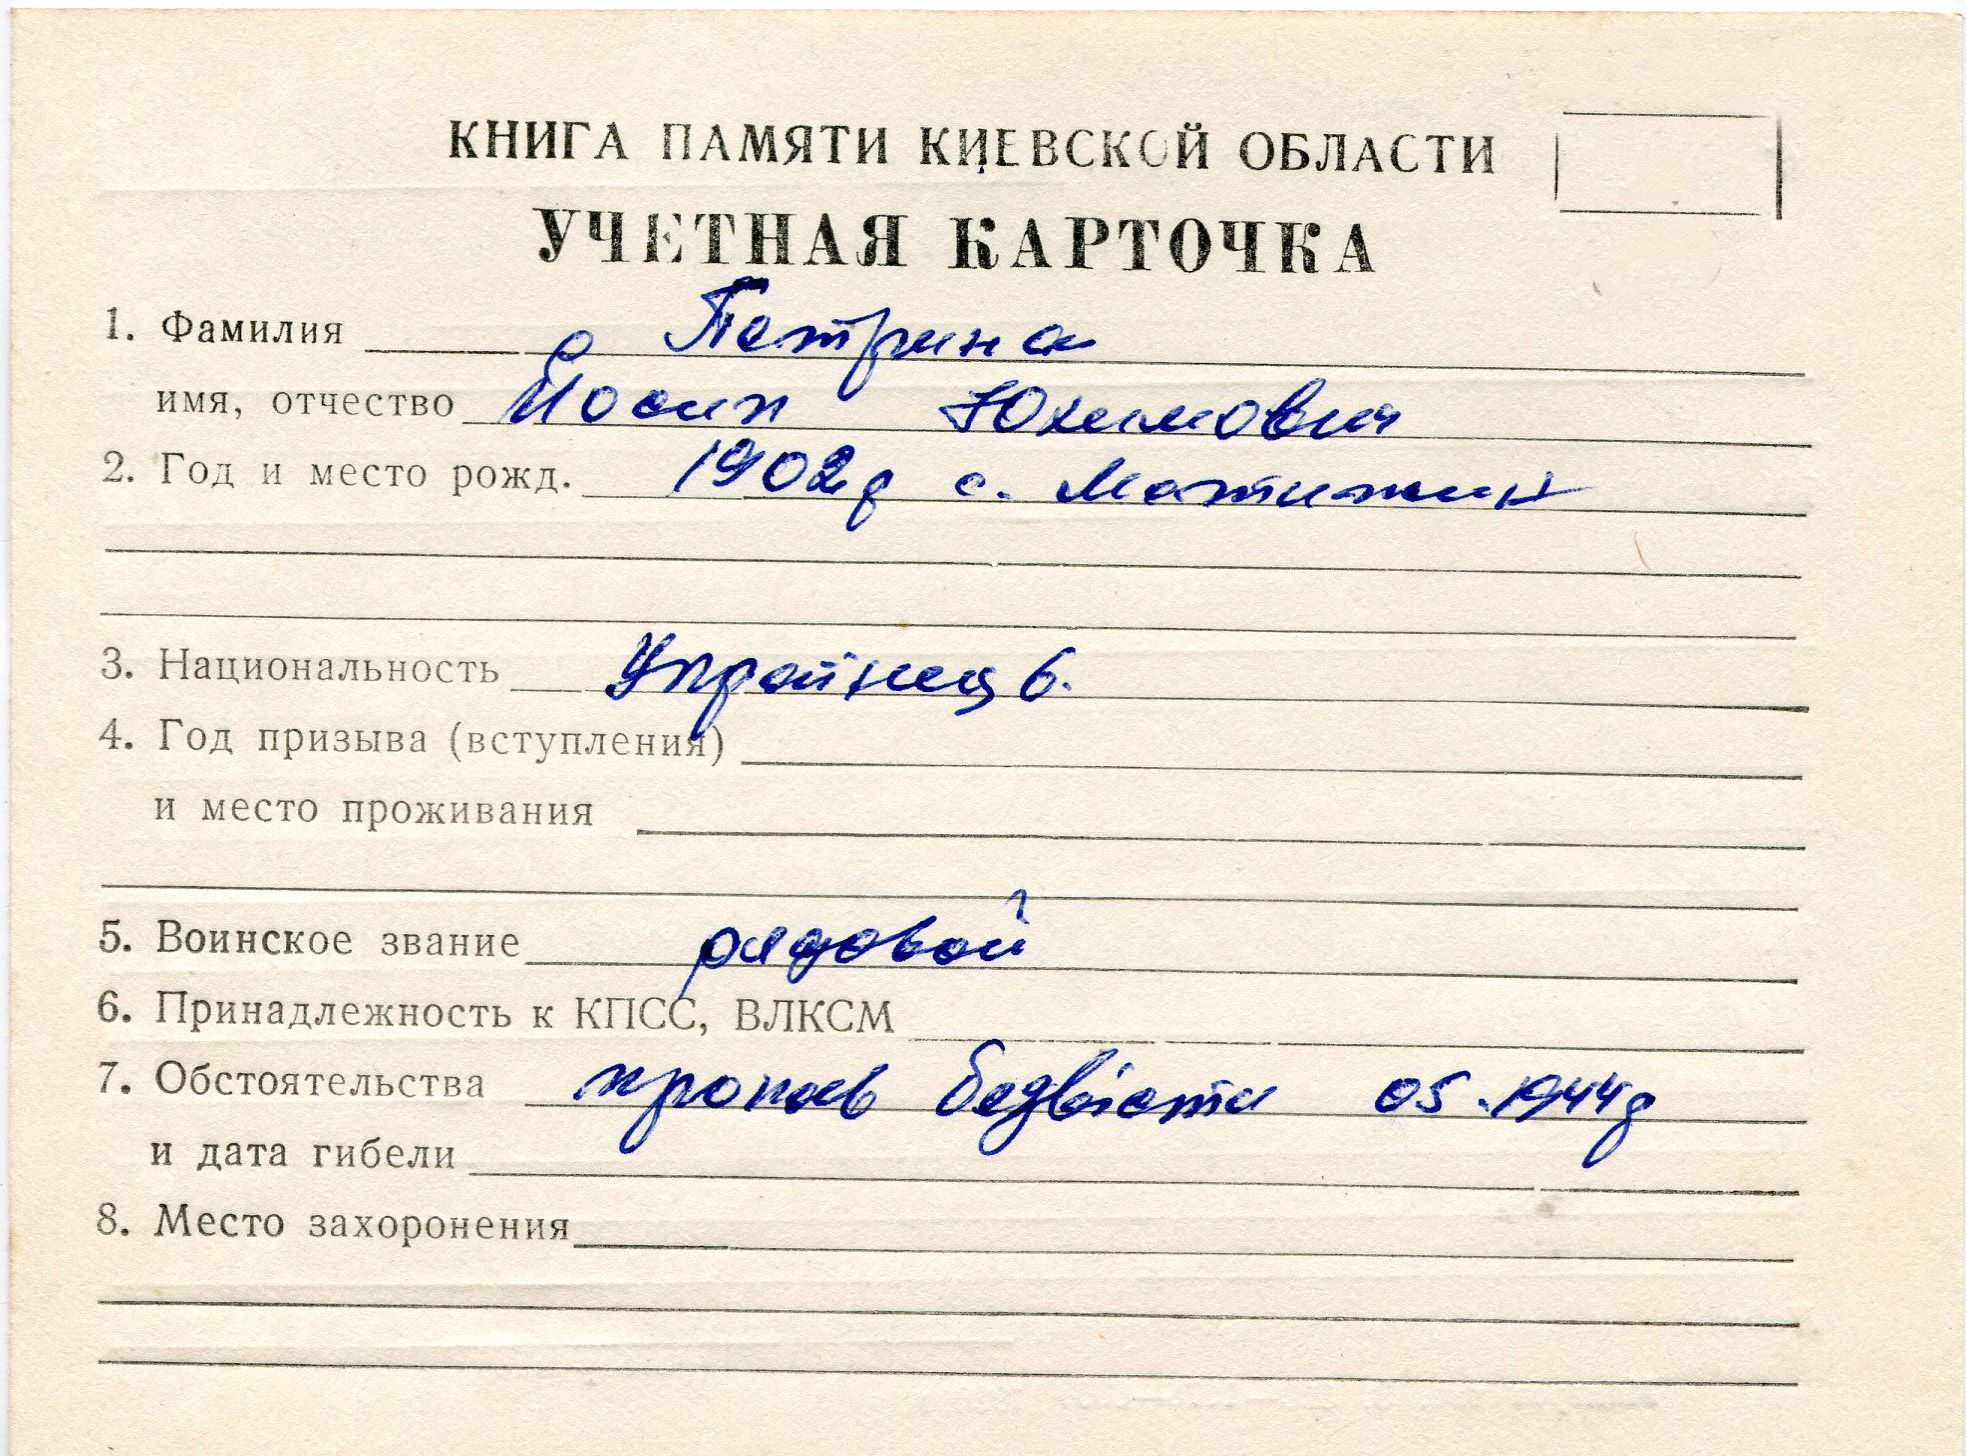 КНИГА ПАМЯТИ КИЕВСКОЙ ОБЛАСТИ
УЧЕТНАЯ КАРТОЧКА
1. Фамилия Петрина
имя, отчество Йосип Юхимович
2. Год и место рожд. 1902р с. Мотижин
3. Национальность Українець
4. Год призыва (вступления)
и место проживания
5. Воинское звание рядовой
6. Принадлежность к КПСС, ВЛКСМ
7. Обстоятельства пропав безвісти 05.1944р
и дата гибели
8. Место захоронения